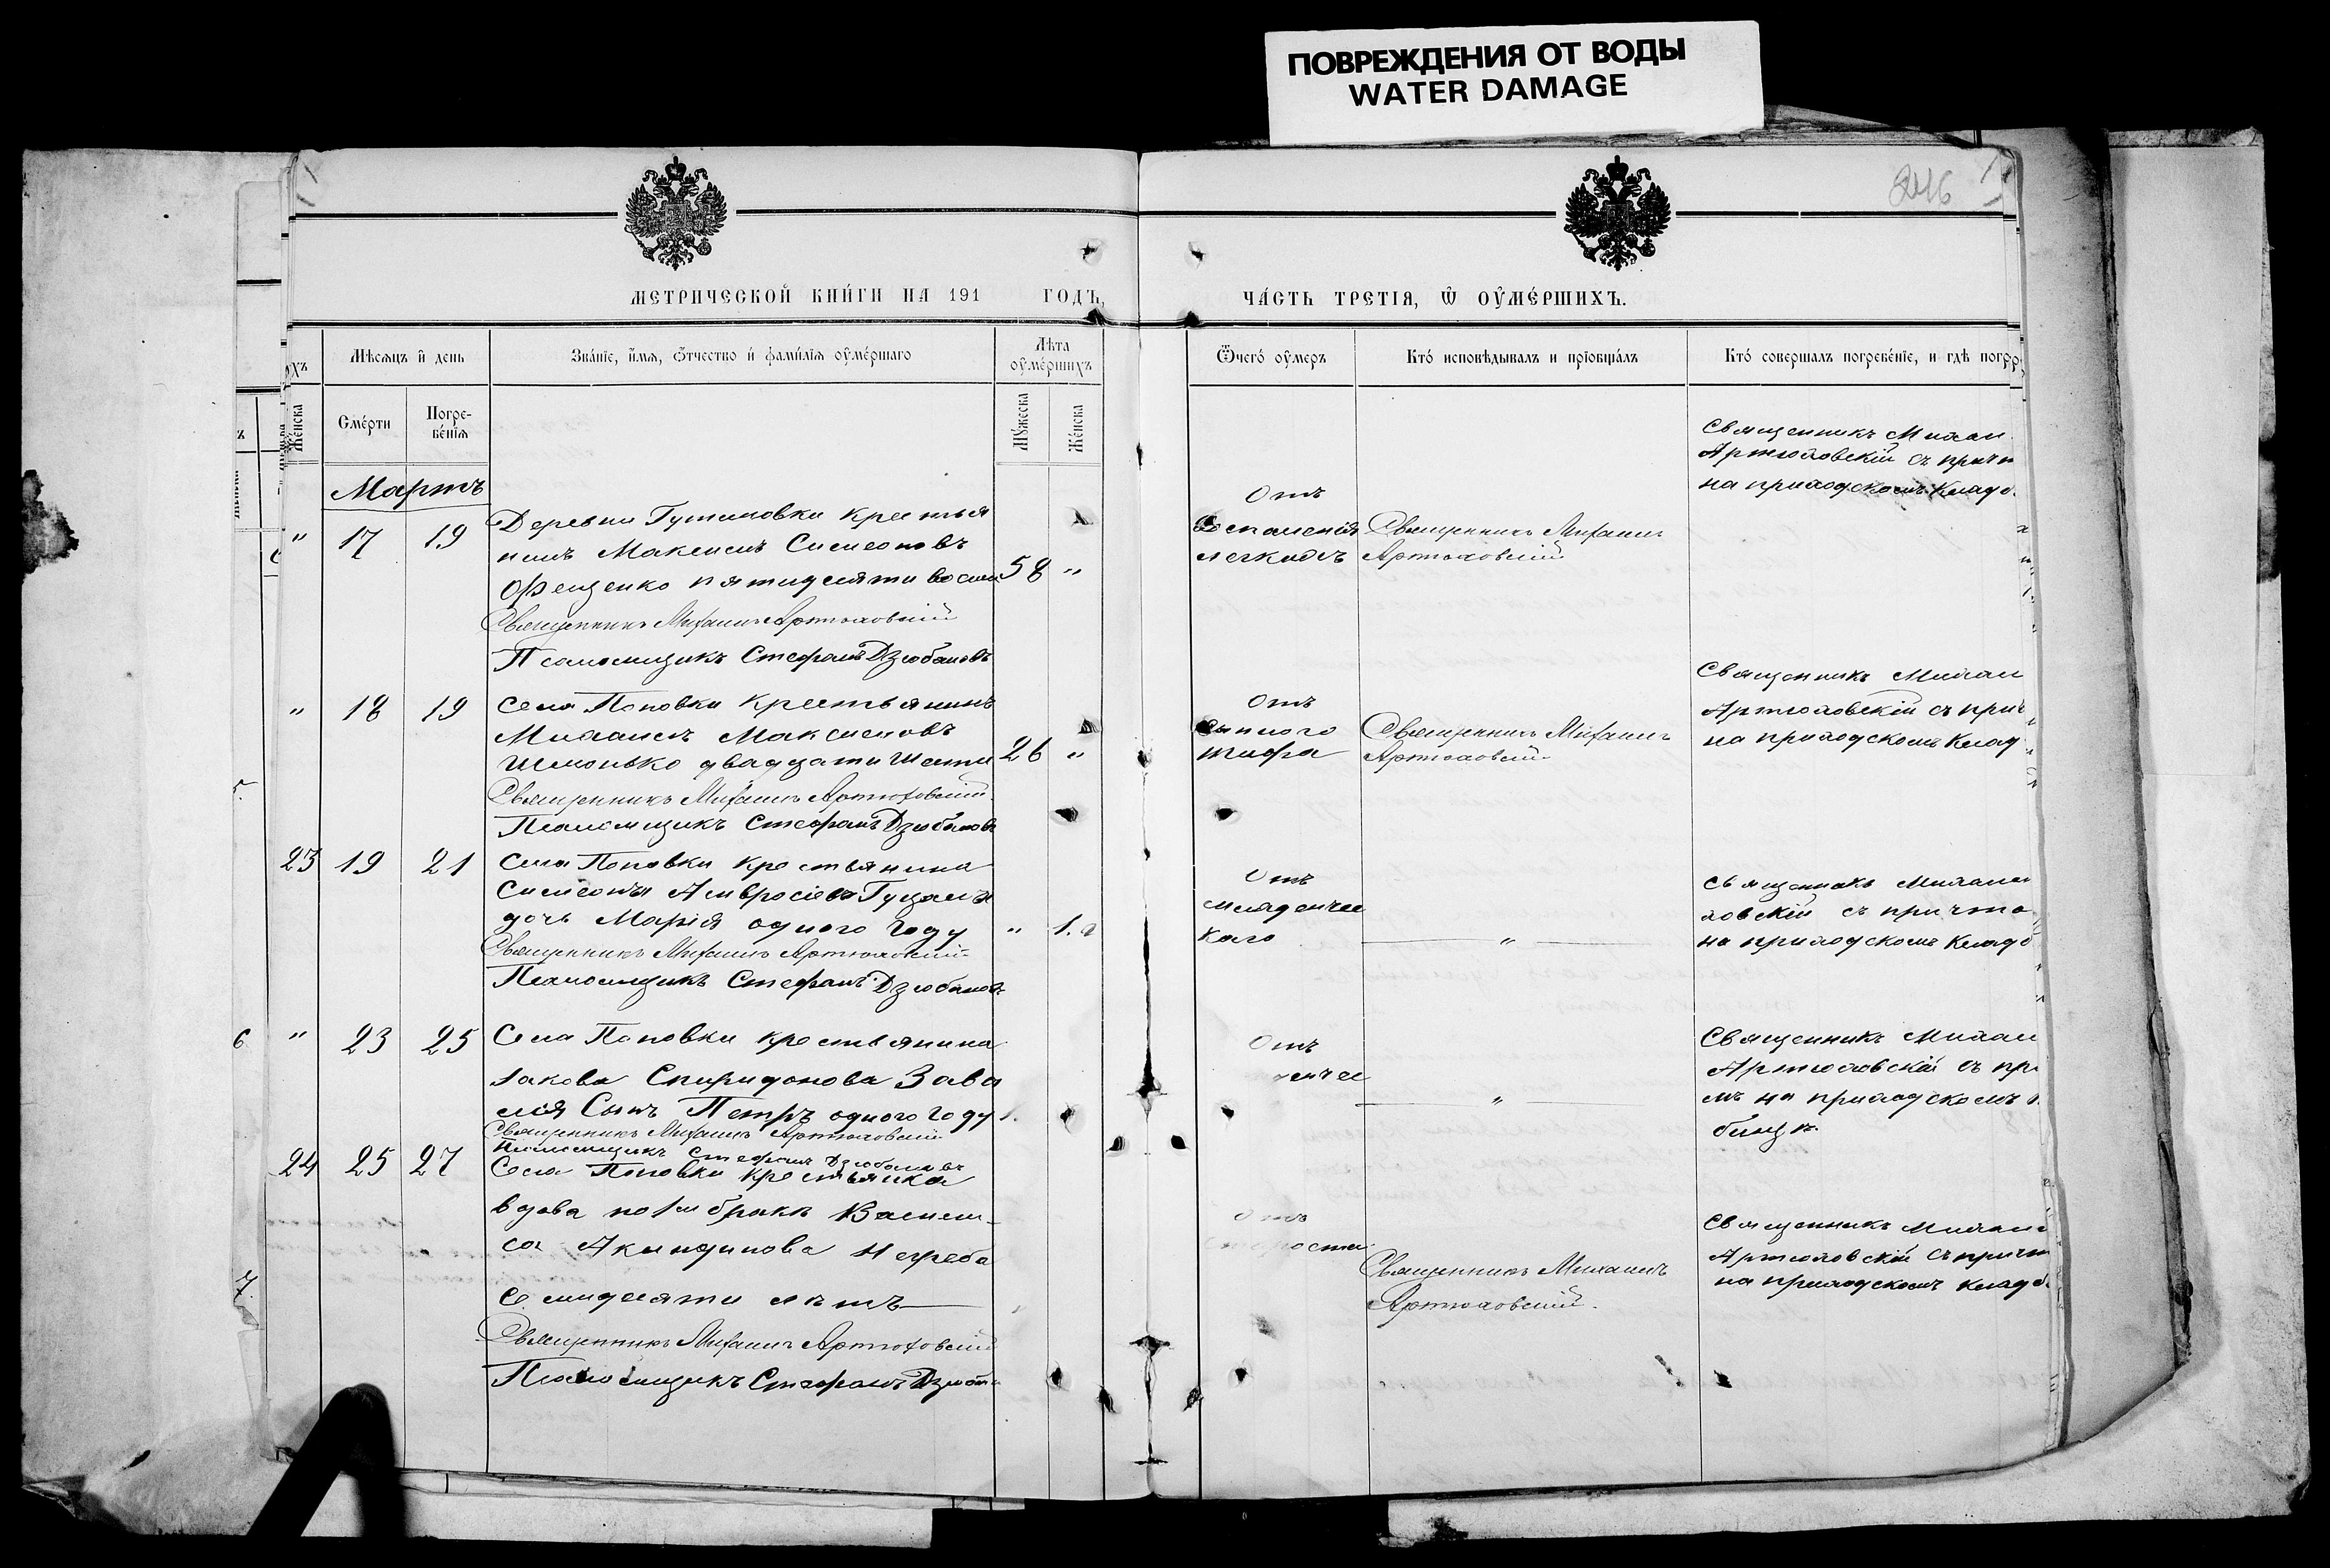 ПОВРЕЖДЕНИЯ ОТ ВОДЫ
WATER DAMAGE
МЕТРИЧЕСКОЙ КНИГИ НА 191 ГОДЪ,
ЧАСТЬ ТРЕТІЯ, Ѿ ОУМЕРШИХЪ.
246
Мѣсяцъ и день
Званіе, имя, отчество и фамилія оумершаго
Лѣта оумершихъ
Ѿчего оумеръ
Кто исповѣдывалъ и пріобщалъ
Кто совершалъ погребеніе, и гдѣ погр
Женска
Смерти
Погре-
бенія
Мужеска
Женска
Мартъ
" 17 19
Деревни Гутиловки крестья
нинъ Максимъ Симеоновъ
Офещенко пятидесяти восьми 58 "
Священникъ Михаилъ Артюховскій
Псаломщикъ Стефанъ Дзюбановъ
Отъ
воспаленія
легкихъ
Священникъ Михаилъ
Артюховскій
Священникъ Михаи
Артюховскій съ причт
на приходскомъ кладб.
" 18 19
Села Поповки крестьянинъ
Михаилъ Максимовъ
Шмонько двадцати шести 26 "
Священникъ Михаилъ Артюховскій
Псаломщикъ Стефанъ Дзюбановъ
Отъ
сыпного
тифа
Священникъ Михаилъ
Артюховскій
Священникъ Михаи
Артюховскій съ прич
на приходскомъ клад
23 19 21
Села Поповки крестьянина
Симеона Амвросіева Гуцала
дочь Марія одного году " 1.
Священникъ Михаилъ Артюховскій
Псаломщикъ Стефанъ Дзюбановъ
Отъ
младенчес
каго
"
Священникъ Михаи
ховскій съ причто
на приходскомъ кладб
6 " 23 25
Села Поповки крестьянина
Іакова Спиридонова Зава
лія Сынъ Петръ одного году 1.
Священникъ Михаилъ Артюховскій
Псаломщикъ Стефанъ Дзюбановъ
Отъ
енчес
"
Священникъ Михаи
Артюховскій съ при
мъ на приходскомъ к
бищѣ.
24 25 27
Села Поповки крестьянка
вдова по 1му бракѣ Васили
са Акиндинова Нехреба
Семидесяти лѣтъ
Священникъ Михаилъ Артюховскій
Псаломщикъ Стефанъ Дзюба
Отъ
старости
Священникъ Михаилъ
Артюховскій.
Священникъ Михаи
Артюховскій съ причт
на приходскомъ кладб.
7.